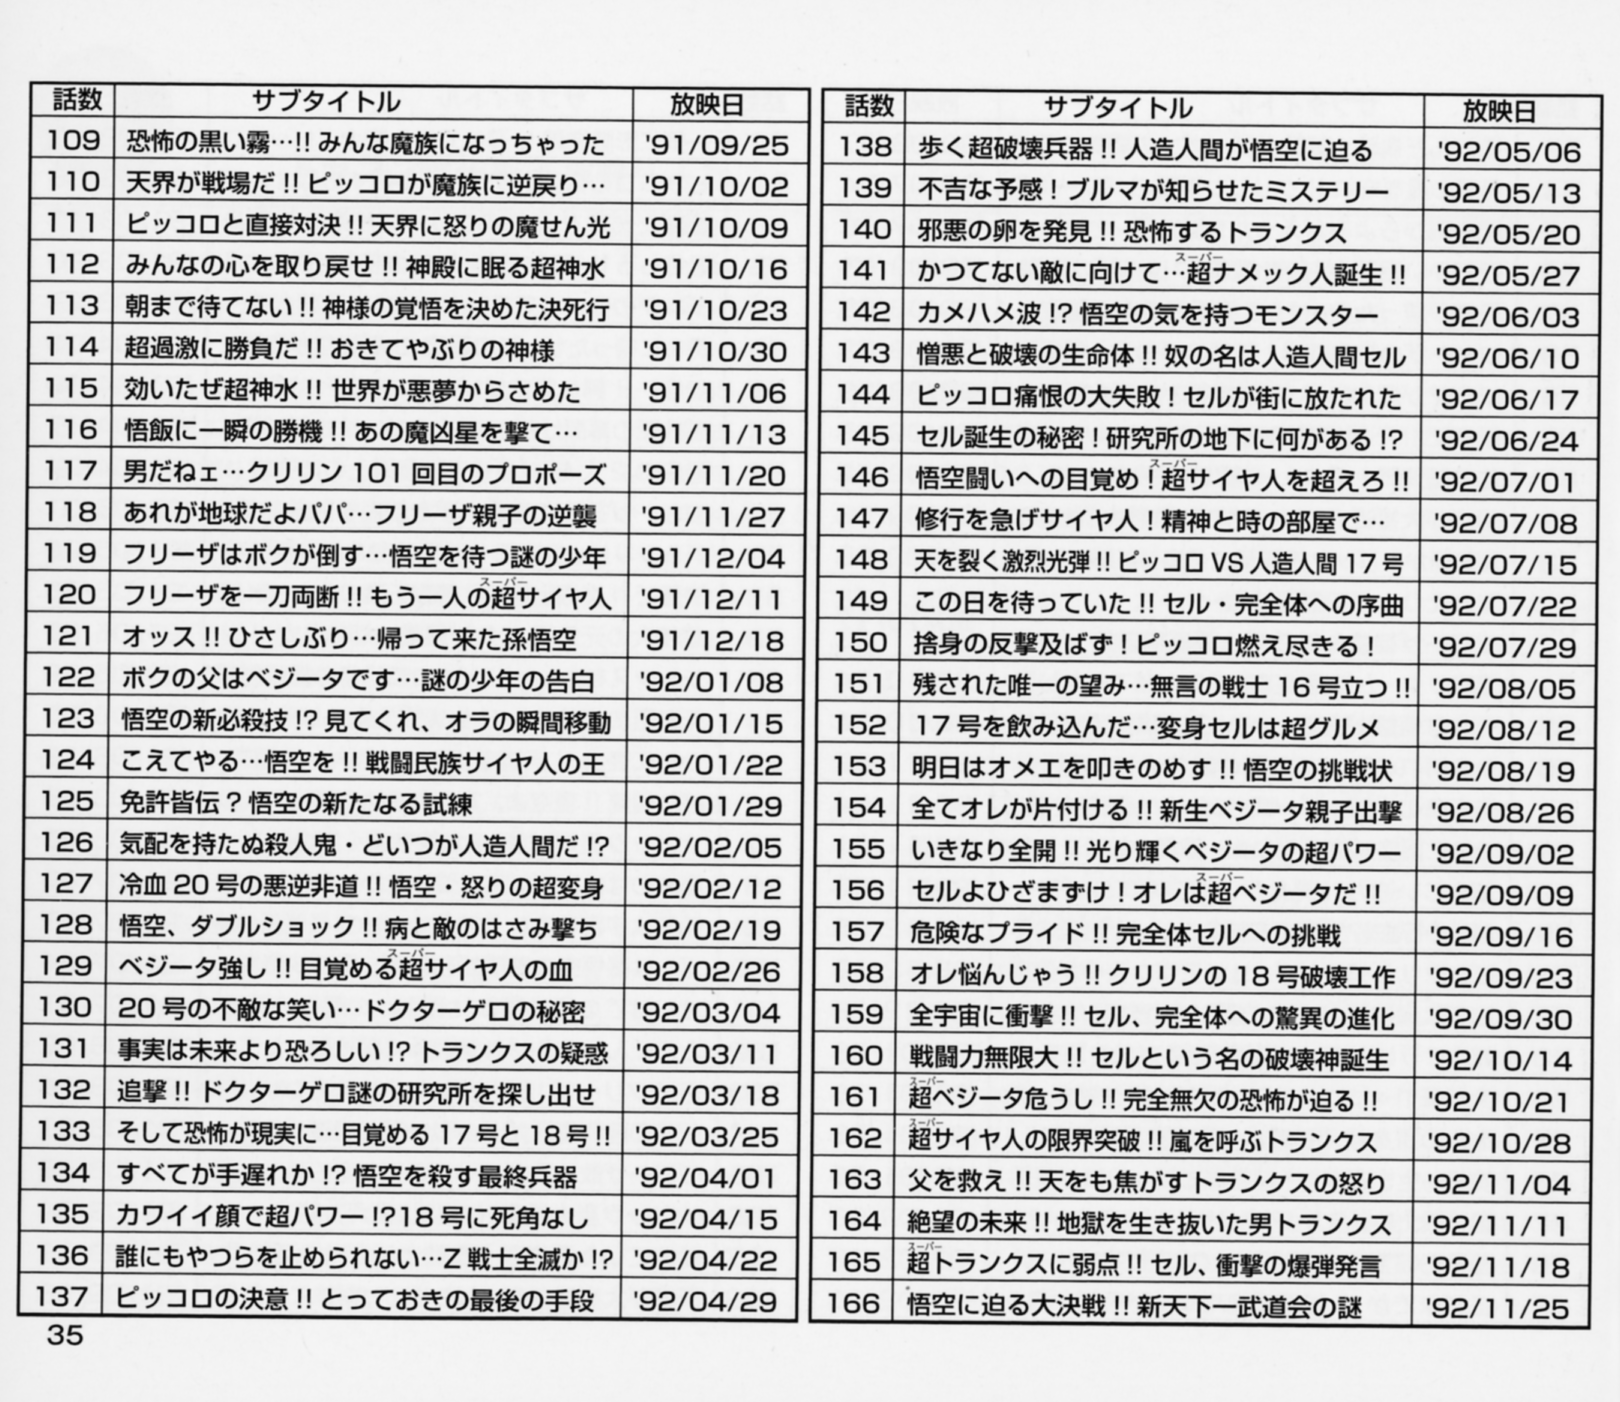 話数 サブタイトル 放映日
109 恐怖の黒い霧…!! みんな魔族になっちゃった '91/09/25
110 天界が戦場だ!! ピッコロが魔族に逆戻り… '91/10/02
111 ピッコロと直接対決!! 天界に怒りの魔せん光 '91/10/09
112 みんなの心を取り戻せ!! 神殿に眠る超神水 '91/10/16
113 朝まで待てない!! 神様の覚悟を決めた決死行 '91/10/23
114 超過激に勝負だ!! おきてやぶりの神様 '91/10/30
115 効いたぜ超神水!! 世界が悪夢からさめた '91/11/06
116 悟飯に一瞬の勝機!! あの魔凶星を撃て… '91/11/13
117 男だねェ…クリリン101回目のプロポーズ '91/11/20
118 あれが地球だよパパ…フリーザ親子の逆襲 '91/11/27
119 フリーザはボクが倒す…悟空を待つ謎の少年 '91/12/04
120 フリーザを一刀両断!! もう一人の超スーパーサイヤ人 '91/12/11
121 オッス!! ひさしぶり…帰って来た孫悟空 '91/12/18
122 ボクの父はベジータです…謎の少年の告白 '92/01/08
123 悟空の新必殺技!? 見てくれ、オラの瞬間移動 '92/01/15
124 こえてやる…悟空を!! 戦闘民族サイヤ人の王 '92/01/22
125 免許皆伝? 悟空の新たなる試練 '92/01/29
126 気配を持たぬ殺人鬼・どいつが人造人間だ!? '92/02/05
127 冷血20号の悪逆非道!! 悟空・怒りの超変身 '92/02/12
128 悟空、ダブルショック!! 病と敵のはさみ撃ち '92/02/19
129 ベジータ強し!! 目覚める超スーパーサイヤ人の血 '92/02/26
130 20号の不敵な笑い…ドクターゲロの秘密 '92/03/04
131 事実は未来より恐ろしい!? トランクスの疑惑 '92/03/11
132 追撃!! ドクターゲロ謎の研究所を探し出せ '92/03/18
133 そして恐怖が現実に…目覚める17号と18号!! '92/03/25
134 すべてが手遅れか!? 悟空を殺す最終兵器 '92/04/01
135 カワイイ顔で超パワー!?18号に死角なし '92/04/15
136 誰にもやつらを止められない…Z戦士全滅か!? '92/04/22
137 ピッコロの決意!! とっておきの最後の手段 '92/04/29
35
話数 サブタイトル 放映日
138 歩く超破壊兵器!! 人造人間が悟空に迫る '92/05/06
139 不吉な予感! ブルマが知らせたミステリー '92/05/13
140 邪悪の卵を発見!! 恐怖するトランクス '92/05/20
141 かつてない敵に向けて…超スーパーナメック人誕生!! '92/05/27
142 カメハメ波!? 悟空の気を持つモンスター '92/06/03
143 憎悪と破壊の生命体!! 奴の名は人造人間セル '92/06/10
144 ピッコロ痛恨の大失敗! セルが街に放たれた '92/06/17
145 セル誕生の秘密! 研究所の地下に何がある!? '92/06/24
146 悟空闘いへの目覚め! 超スーパーサイヤ人を超えろ!! '92/07/01
147 修行を急げサイヤ人! 精神と時の部屋で… '92/07/08
148 天を裂く激烈光弾!! ピッコロVS人造人間17号 '92/07/15
149 この日を待っていた!! セル・完全体への序曲 '92/07/22
150 捨身の反撃及ばず! ピッコロ燃え尽きる! '92/07/29
151 残された唯一の望み…無言の戦士16号立つ!! '92/08/05
152 17号を飲み込んだ…変身セルは超グルメ '92/08/12
153 明日はオメエを叩きのめす!! 悟空の挑戦状 '92/08/19
154 全てオレが片付ける!! 新生ベジータ親子出撃 '92/08/26
155 いきなり全開!! 光り輝くベジータの超パワー '92/09/02
156 セルよひざまずけ! オレは超スーパーベジータだ!! '92/09/09
157 危険なプライド!! 完全体セルへの挑戦 '92/09/16
158 オレ悩んじゃう!! クリリンの18号破壊工作 '92/09/23
159 全宇宙に衝撃!! セル、完全体への驚異の進化 '92/09/30
160 戦闘力無限大!! セルという名の破壊神誕生 '92/10/14
161 超スーパーベジータ危うし!! 完全無欠の恐怖が迫る!! '92/10/21
162 超スーパーサイヤ人の限界突破!! 嵐を呼ぶトランクス '92/10/28
163 父を救え!! 天をも焦がすトランクスの怒り '92/11/04
164 絶望の未来!! 地獄を生き抜いた男トランクス '92/11/11
165 超スーパートランクスに弱点!! セル、衝撃の爆弾発言 '92/11/18
166 悟空に迫る大決戦!! 新天下一武道会の謎 '92/11/25